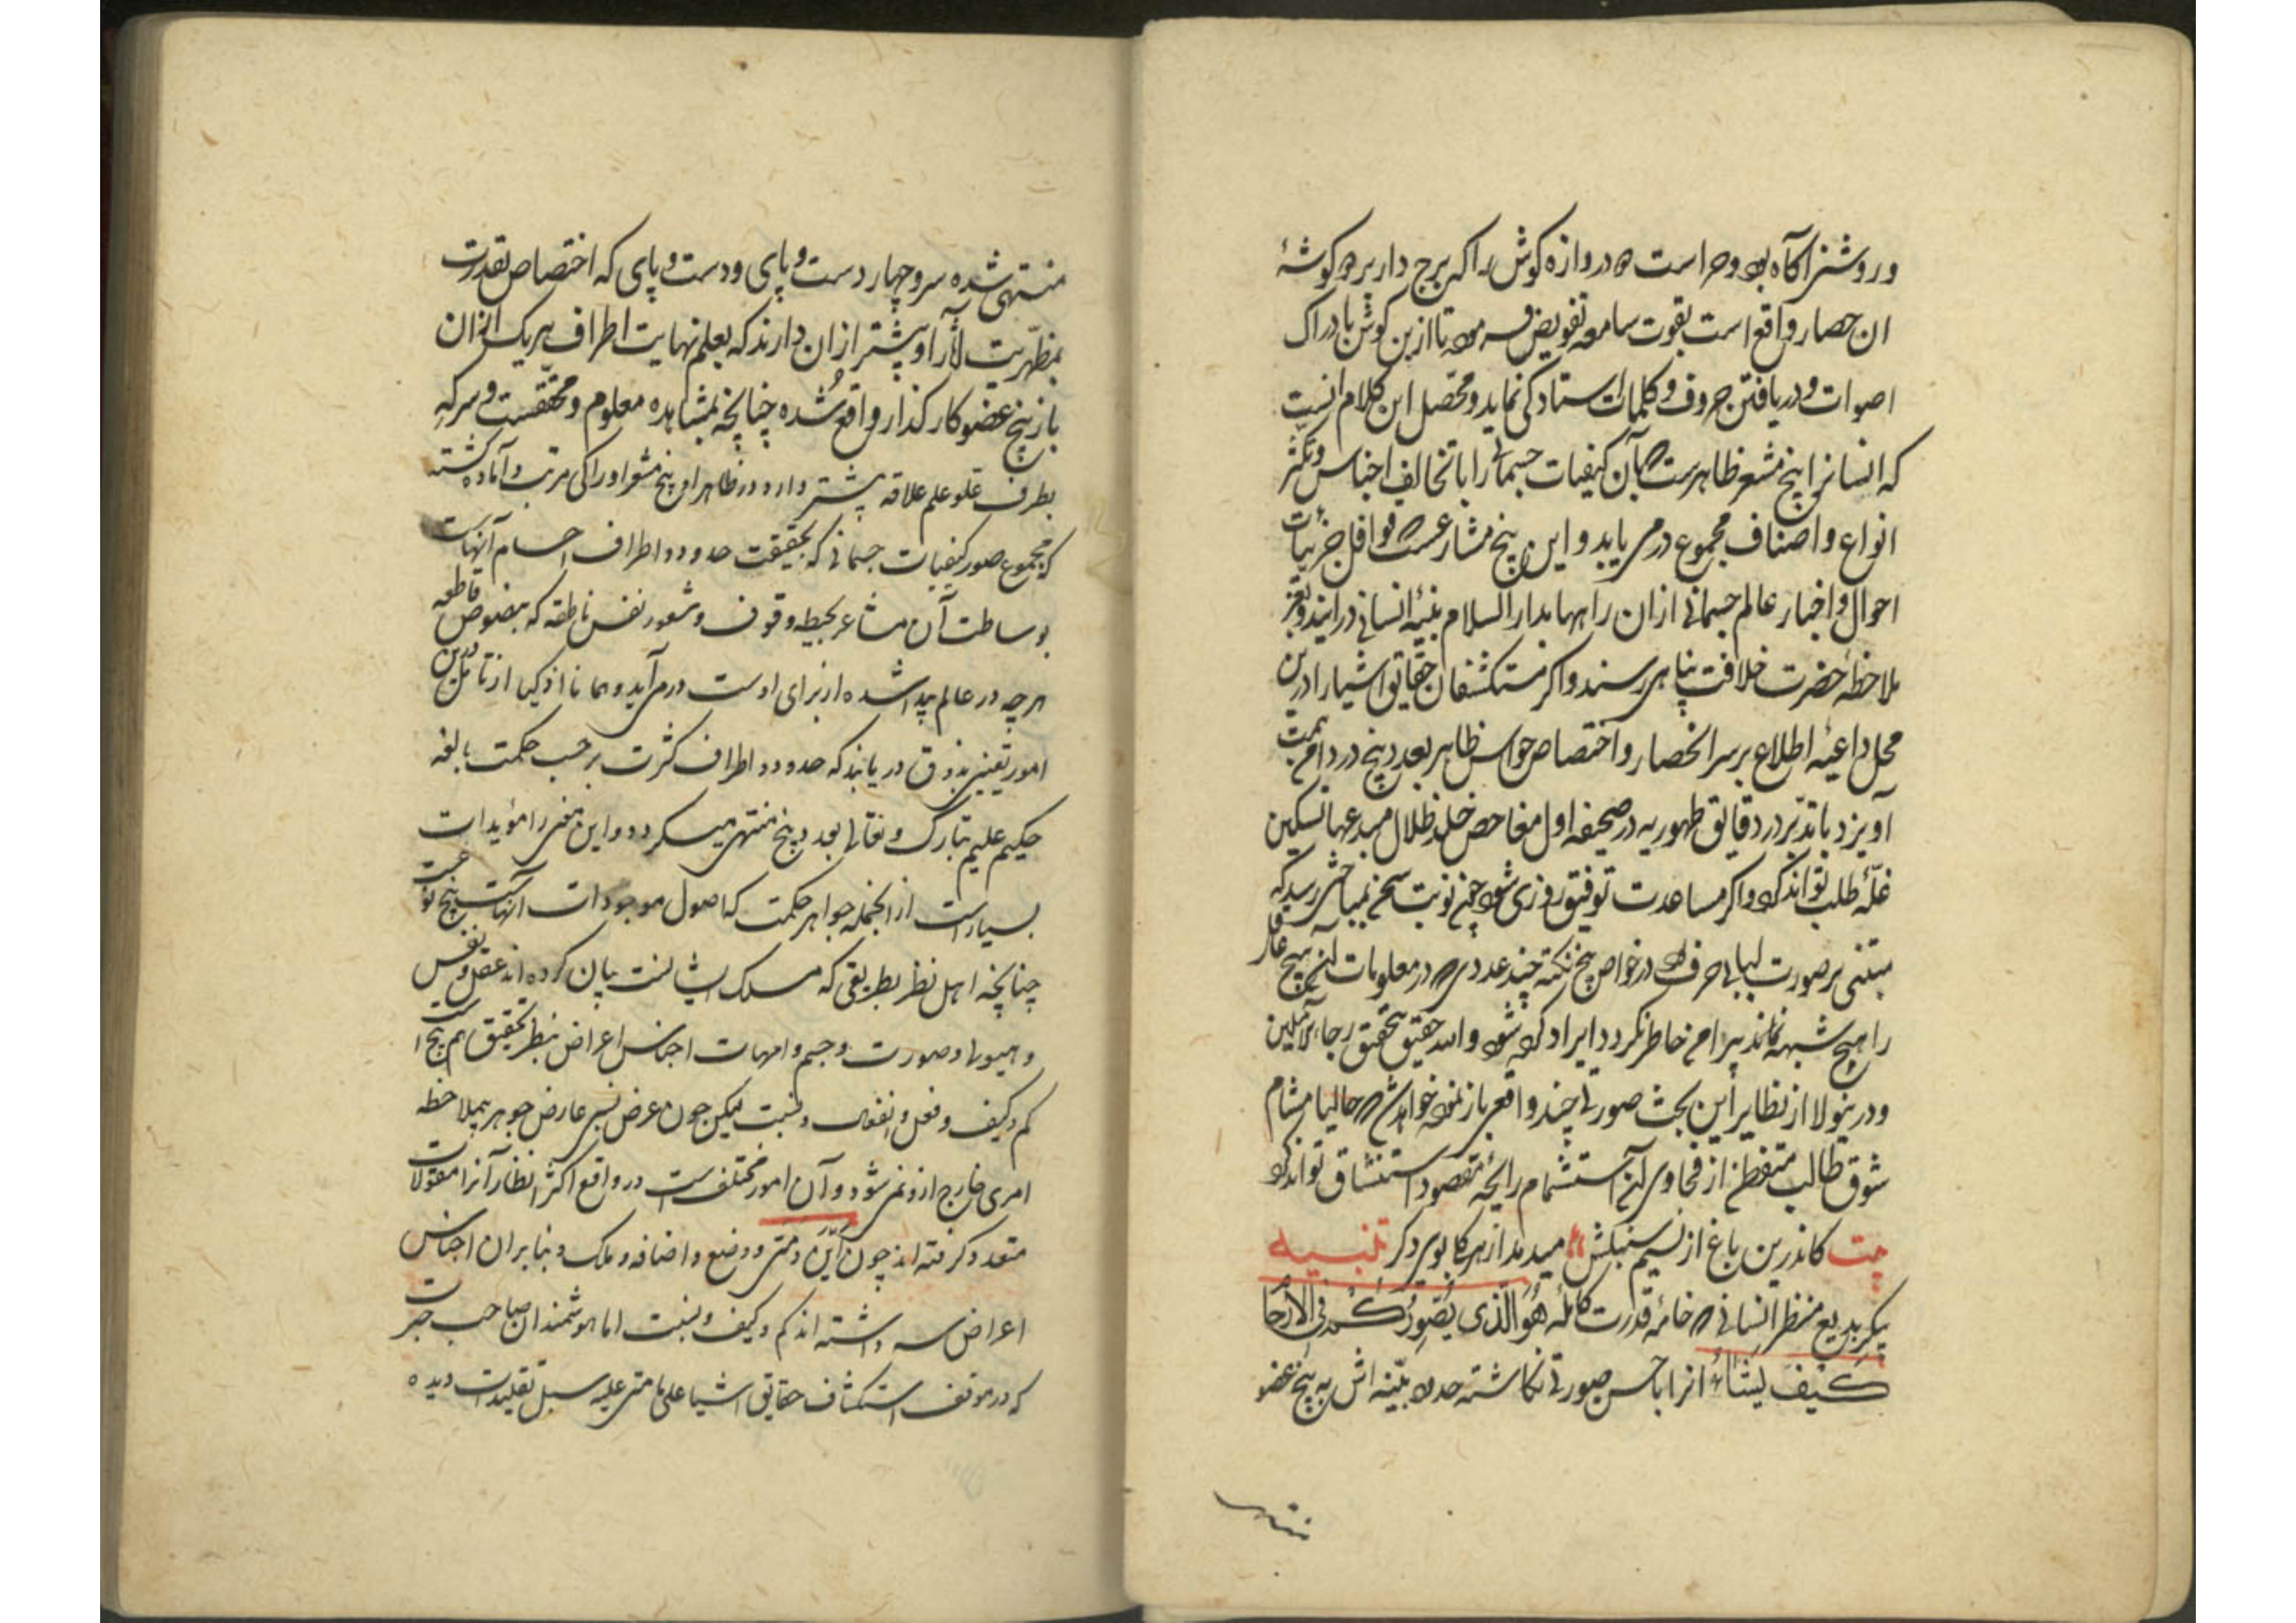 و روشنی آکاه بود و حراست دروازه کوش را که برج دار بر کوشهٔ
ان حصار واقع است بقوت سامعه تفویض فرمود تا ازین کوش بادراک
اصوات و دریافتن حروف و کلمات استادکی نماید و محصّل این کلام انست
که انسانرا پنج مشعر ظاهرست که بآن کیفیات جسمانی را با تخالف اجناس و تکثر
انواع و اصناف مجموع در می یابد و این پنج مشاعرست قوافل جزییات
احوال و اخبار عالم جسمانی ازان راهها بدار السلام بنیهٔ انسانی درایند و بعز
ملاحظهٔ حضرت خلافت پناهی رسند و اکر مستکشفان حقایق اشیا را درین
محل داعیهٔ اطلاع بر سر انحصار و اختصاص حواس ظاهر بعدد پنج در دامن همت
آویزد با تدبر در دقایق ظهوریه در صحیفه اول مفاحص ظلال مبدعها تسکین
غلّهٔ طلب تواند کرد و اکر مساعدت توفیق روزی شود چون نوبت سخن بمباحثی رسد که
مبتنی بر صورت لبابی حرفست در خواص پنج نکته چند عددی که در معلومات آن هیچ عاقل
را هیچ شبهه نماند پیرامن خاطر نکردد ایراد کرده شود والله حقیق بتحقیق رجاء الآملین
و درینولا از نظایر این بحث صورتی چند واقعی باز نموده خواهد شد که حالیا مشام
شوق طالب متفطن از فحاوی آن استشمام رایحهٔ مقصود استنشاق تواند کرد
بیت کاندرین باغ از نسیم سنبلش میدمد از هر کلی بوی دکر تنبیه
پیکر بدیع منظر انسانی که خامهٔ قدرت کاملهٔ هُوَ الَّذی یُصَوِّرُکُم فی الأرحام
کَیفَ یَشَاءُ انرا باحسن صورتی نکاشته حدود بنیه اش به پنج عضو
منتهی
منتهی شده سر و چهار دست و پای و دست و پای که اختصاص بقدرت
بمظهریت لأرا و بیشتر ازان دارند که بعلم نهایت اطراف هر یک ازان
باز پنج عضو کارکذار واقع شده چنانچه بمشاهده معلوم و محققست و سر که
بطرف علو علم علاقه بیشتر دارد در ظاهر او پنج مشعر ادراکی مرتب و آماده کشته
که مجموع صور کیفیات جسمانی که بحقیقت حدود و اطراف اجسام آنهاست
بوساطت آن مشاعر بحیطه وقوف و شعور نفس ناطقه که بنصوص قاطعه
هر چه در عالم پیدا شده از برای اوست در می آید و همانا اذکیا از تأمل درین
امور تعیین بذوق دریابند که حدود و اطراف کثرت بر حسب حکمت بالغه
حکیم علیم تبارک و تعالی بعدد پنج منتهی میکردد و این معنی را مؤیدات
بسیارست از انجمله جواهر حکمت که اصول موجودات آنهاست پنج نوعست
چنانچه اهل نظر بطریقی که مسلک ایشانست بیان کرده اند عقل و نفس
و هیولا و صورت و جسم و امهات اجناس اعراض بنظر تحقیق هم پنج است
کم و کیف و فعل و انفعال و نسبت لیکن چون عرض نسبی عارض جوهر بملاحظه
امری خارج ازو نمی شود و آن امور مختلف است در واقع اکثر انظار آنرا مقولات
متعدد کرفته اند چون أین و متی و وضع و اضافه و ملک و بنا بران اجناس
اعراض سه داشته اند کم و کیف و نسبت اما هوشمندان صاحب خبرت
که در موقف استکشاف حقایق اشیا علی ما هی علیه سبل تقلیدات دیده